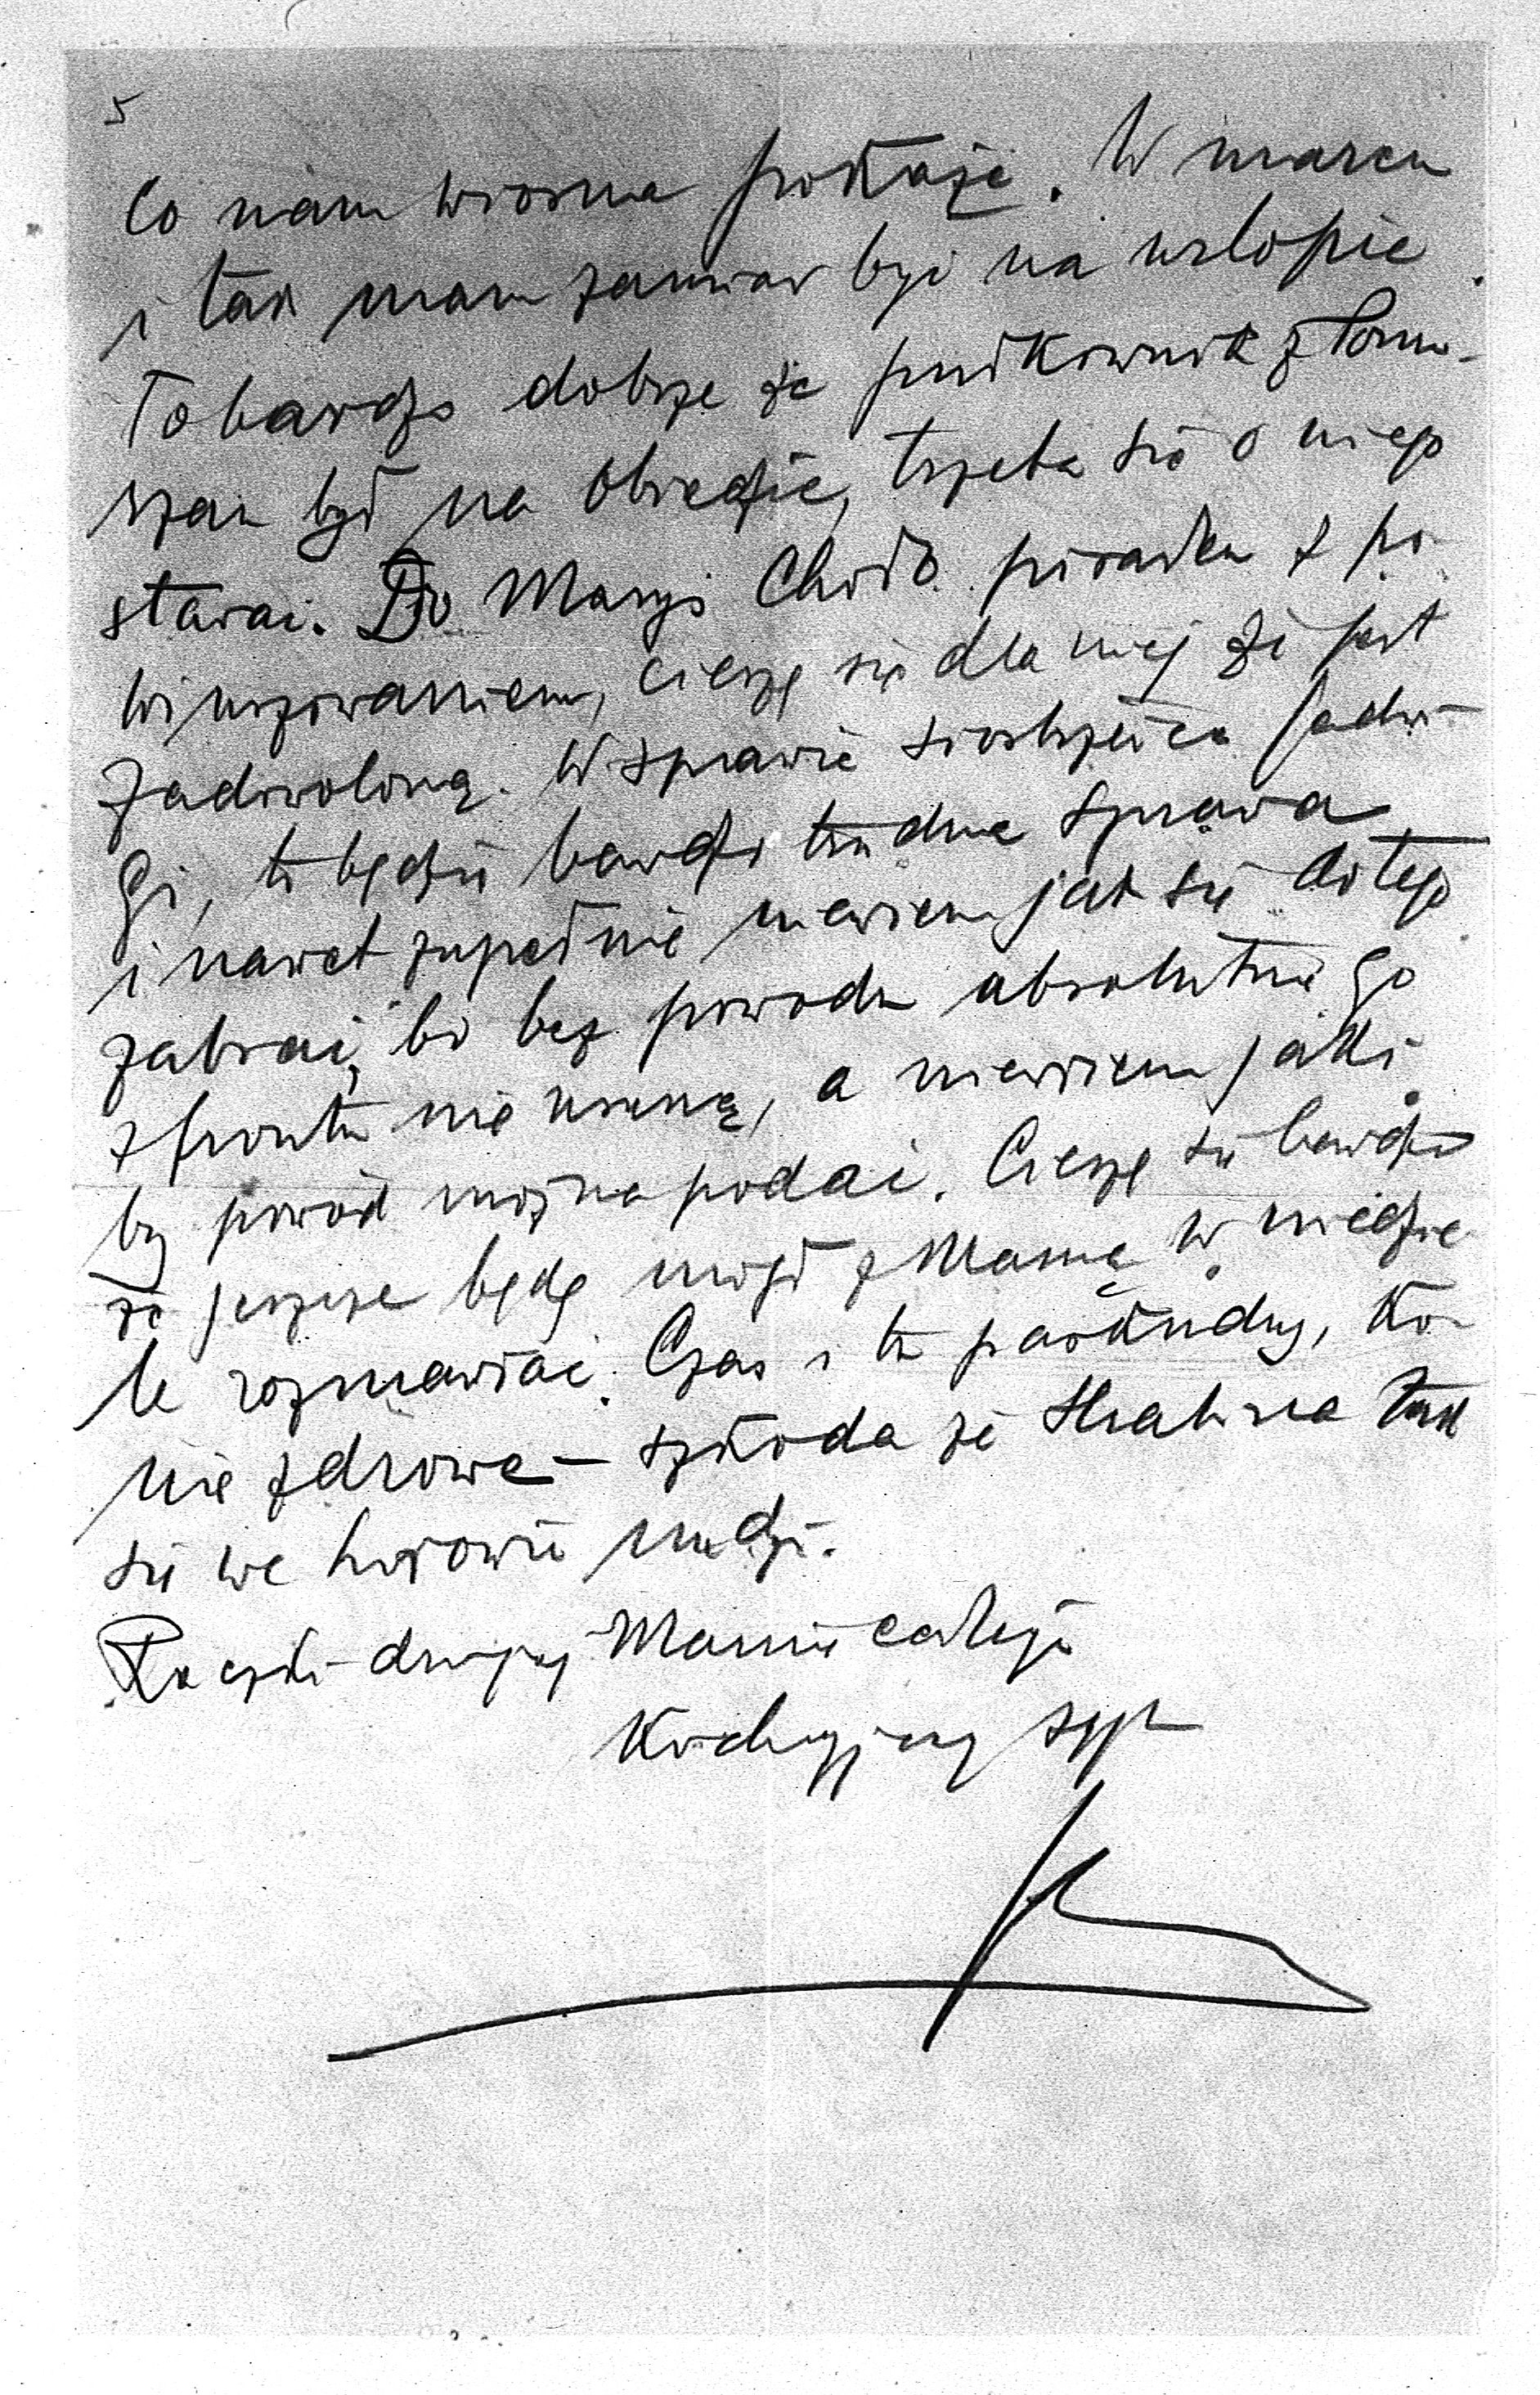 5
Co nam wiosna pokaże. W marcu
i tak mam zamiar być na urlopie.
To bardzo dobrze że pułkownik z Toma-
szem był na obiedzie, trzeba się o niego
starać. Do Marysi Chodź. pisałem z po-
winszowaniem, cieszę się dla niej że jest
zadowoloną. W sprawie siostrzeńca Jadwi-
gi, to będzie bardzo trudna sprawa
i nawet zupełnie niewiem jak się do tego
zabrać, bo bez powodu absolutnie go
z frontu nie usuną, a niewiem jaki
by powód można podać. Cieszę się bardzo
że jeszcze będę mógł z Mamą w niedzie-
le rozmawiać. Czas i tu paskudny, ko-
nie zdrowe – szkoda że się tak
się we Lwowie nudzi.
Rączki drogiej Mamie całuję
Kochający syn